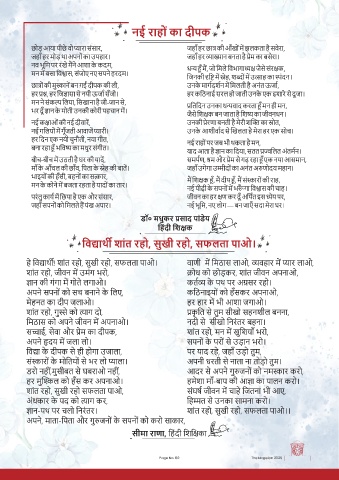 नई राहों का दीपक
छोड़ आया पीछे वो प्यारा संसार,
जहाँ हर मोड़ था अपनों का उपहार।
नव भूमि पर रखे मैंने आशा के कदम,
मन में बसा विश्वास, संजोए नए सपने हरदम।
छात्रों की मुस्कानें बन गईं दीपक की लौ,
हर प्रश्न, हर जिज्ञासा से नयी ऊर्जा पीली।
मन ने संकल्प लिया, सिखाना है जी-जान से,
भर दूँ ज्ञान के मोती उनकी पहचान में।
नई कक्षाओं की नई दीवारें,
नई गलियों में गूँजती आवाजें प्यारी।
हर दिन एक नयी चुनौती, नया गीत,
बना रहा हूँ भविष्य का मधुर संगीत।
बीच-बीच में उठती है घर की यादें,
माँ के आँचल की छाँव, पिता के स्नेह की बातें।
भाइयों की हँसी, बहनों का सत्कार,
मन के कोने में बजता रहता है यादों का तार।
परंतु कार्य में छिपा है एक और संसार,
जहाँ सपनों को मिलते हैं पंख अपार।
जहाँ हर छात्र की आँखों में झलकता है सवेरा,
जहाँ हर व्याख्यान बनता है प्रेम का बसेरा।
धन्य हूँ मैं, जो मिले विभागाध्यक्ष जैसे संरक्षक,
जिनकी दृष्टि में स्नेह, शब्दों में उत्साह का स्पंदन।
उनके मार्गदर्शन में मिलती है अनंत ऊर्जा,
हर कठिनाई सरल हो जाती उनके एक इशारे से दुजा।
प्रतिदिन उनका धन्यवाद करता हूँ मन ही मन,
जैसे शिक्षक बन जाता है शिष्य का जीवनधन।
उनकी प्रेरणा बनती है मेरी शक्ति का स्रोत,
उनके आशीर्वाद से खिलता है मेरा हर एक सोच।
नई राहों पर जब भी थकता है मन,
याद आता है ज्ञान का दिया, सतत प्रज्वलित अंतर्मन।
समर्पण, श्रम और प्रेम से गढ़ रहा हूँ एक नया आसमान,
जहाँ उगेगा उम्मीदों का अनंत अरुणोदय महान।
मैं शिक्षक हूँ, मैं दीप हूँ, मैं संस्कारों की राह,
नई पीढ़ी के सपनों में भरूँगा विश्वास की चाह।
जीवन का हर क्षण कर दूँ अर्पित इस ध्येय पर,
नई भूमि, नए लोग — बन जाएँ सदा मेरा घर।
डॉ० मधुकर प्रसाद पांडेय
हिंदी शिक्षक
विद्यार्थी शांत रहो, सुखी रहो, सफलता पाओ।
हे विद्यार्थी! शांत रहो, सुखी रहो, सफलता पाओ।
शांत रहो, जीवन में उमंग भरो,
ज्ञान की गंगा में गोते लगाओ।
अपने सपनों को सच बनाने के लिए,
मेहनत का दीप जलाओ।
शांत रहो, गुस्से को त्याग दो,
मिठास को अपने जीवन में अपनाओ।
सच्चाई, सेवा और प्रेम का दीपक,
अपने हृदय में जला लो।
विद्या के दीपक से ही होगा उजाला,
संस्कारों के मोतियों से भर लो प्याला।
डरो नहीं मुसीबत से घबराओ नहीं,
हर मुश्किल को हँस कर अपनाओ।
शांत रहो, सुखी रहो सफलता पाओ,
अंधकार के पद को त्याग कर,
ज्ञान-पथ पर चलो निरंतर।
अपने, माता-पिता और गुरुजनों के सपनों को करो साकार,
वाणी में मिठास लाओ, व्यवहार में प्यार लाओ,
क्रोध को छोड़कर, शांत जीवन अपनाओ,
कर्तव्य के पथ पर अग्रसर रहो।
कठिनाइयों को हँसकर अपनाओ,
हर हार में भी आशा जगाओ।
प्रकृति से तुम सीखो सहनशील बनना,
नदी से सीखो निरंतर बहना।
शांत रहो, मन में खुशियाँ भरो,
सपनों के परों से उड़ान भरो।
पर याद रहे, जहाँ उड़ो तुम,
अपनी धरती से नाता ना तोड़ो तुम।
आदर से अपने गुरुजनों को नमस्कार करो,
हमेशा माँ-बाप की आज्ञा का पालन करो।
संघर्ष जीवन में चाहे जितना भी आए,
हिम्मत से उनका सामना करो।
शांत रहो, सुखी रहो, सफलता पाओ।।
सीमा राणा, हिंदी शिक्षिका